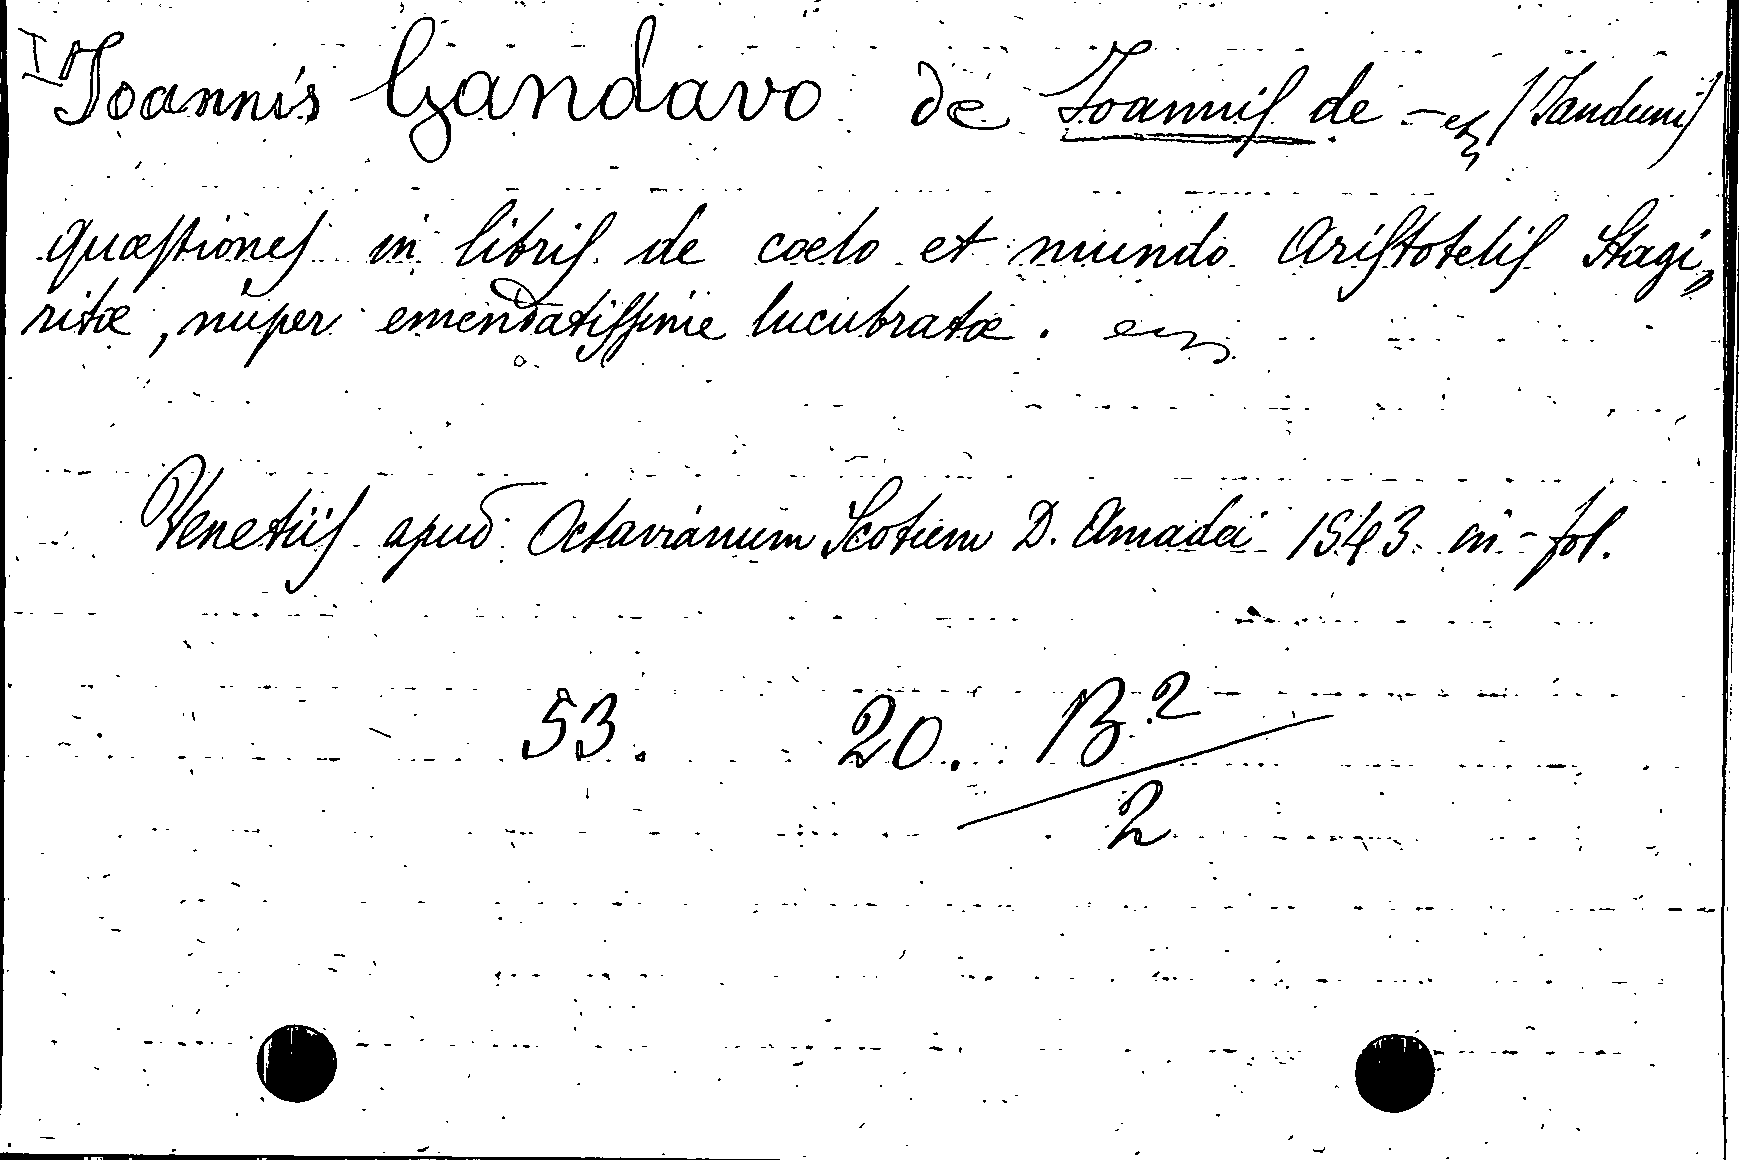 I Joannis Gandavo de Joannis de - (Janduni)
quæstiones in libris de cœlo et mundo Aristotelis Stagi„
ritæ, nuper emendatissime lucubratæ.
Venetiis apud Octavianum Scotum D. Amadei 1543 in-fol.
53. 20. B²
2